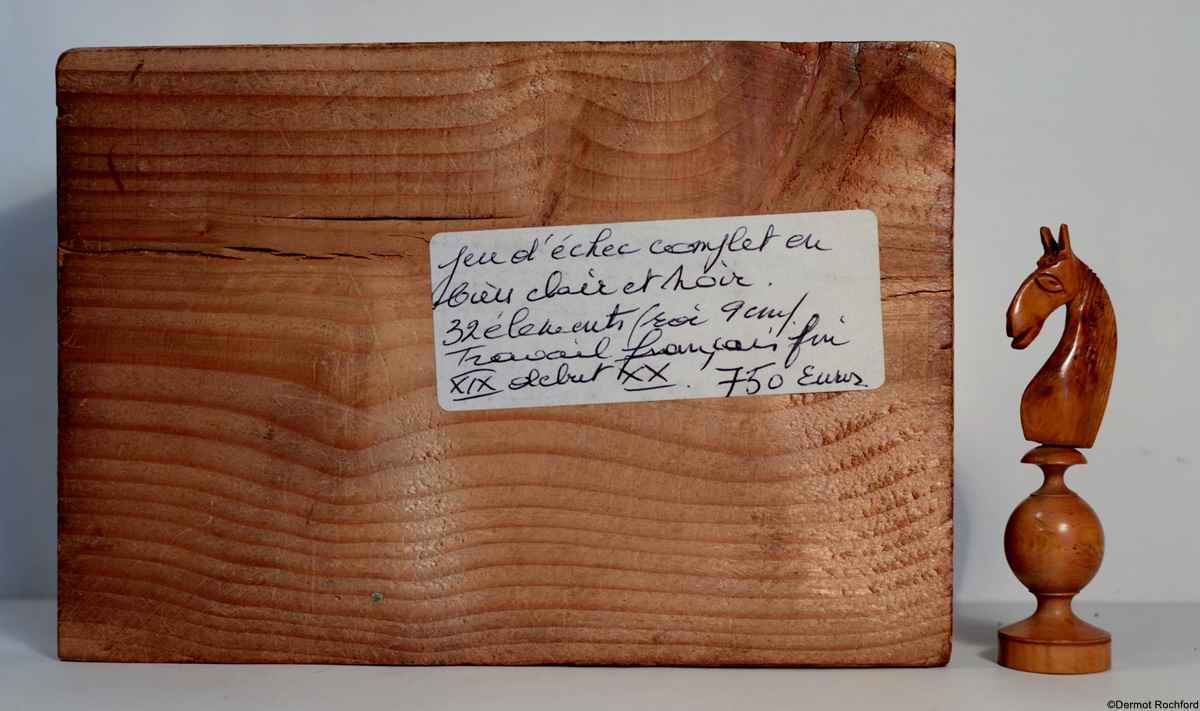 Jeu d'échec complet en
bois clair et noir.
32 élements (roi 9 cm)
Travail français fin
XIX debut XX. 750 Euros
©Dermot Rochford